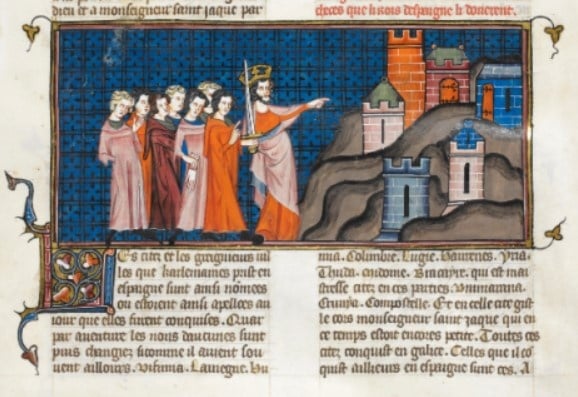 dieu et a monseigneur saint iaque par
que li rois despaigne li donerent.
Es citez et les greigneurs uil
les que karlemaines prist en
espaigne sunt ainsi nomees
ou estoient ainsi apelees au
iour que elles furent conquises. Quar
par auenture les nons daucunes sunt
puis changiez si comme il auient sou
uent ailleurs. Lamegue.
mia. Colimbre. Lugie. Yria.
Thuda. qui est mai
stresse citez en ces parties. Vimmarana.
Crunya. Compostelle. Et en celle cite gist
le cors monseigneur saint iaque qui en
ce temps estoit encores petite. Toutes ces
citez conquist en galice. Celles que il cō
quist ailleurs en espaigne sunt ces. A